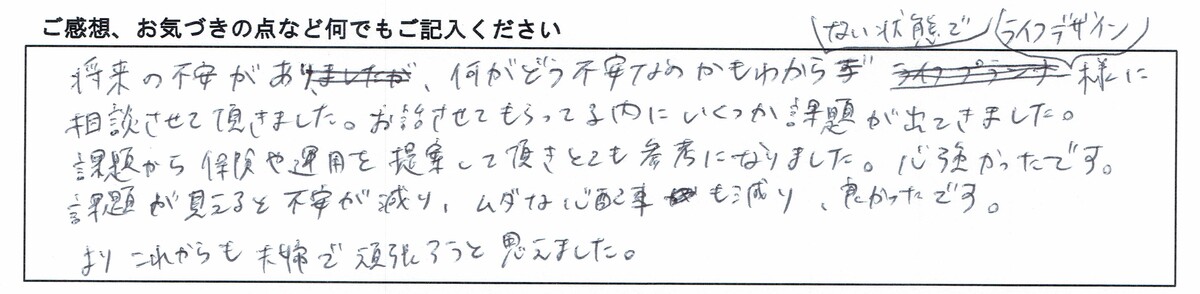 ご感想、お気づきの点など何でもご記入ください
ない状態で ライフデザイン
将来の不安があり、何がどう不安なのかもわから 様に
相談させて頂きました。お話させてもらってる内にいくつか課題が出てきました。
課題から保険や運用を提案して頂きとても参考になりました。心強かったです。
課題が見えると不安が減り、ムダな心配事も減り、良かったです。
よりこれからも夫婦で頑張ろうと思えました。